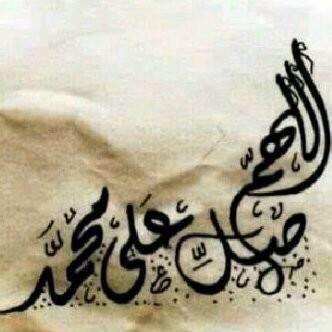 اللهم
صلِّ على محمد